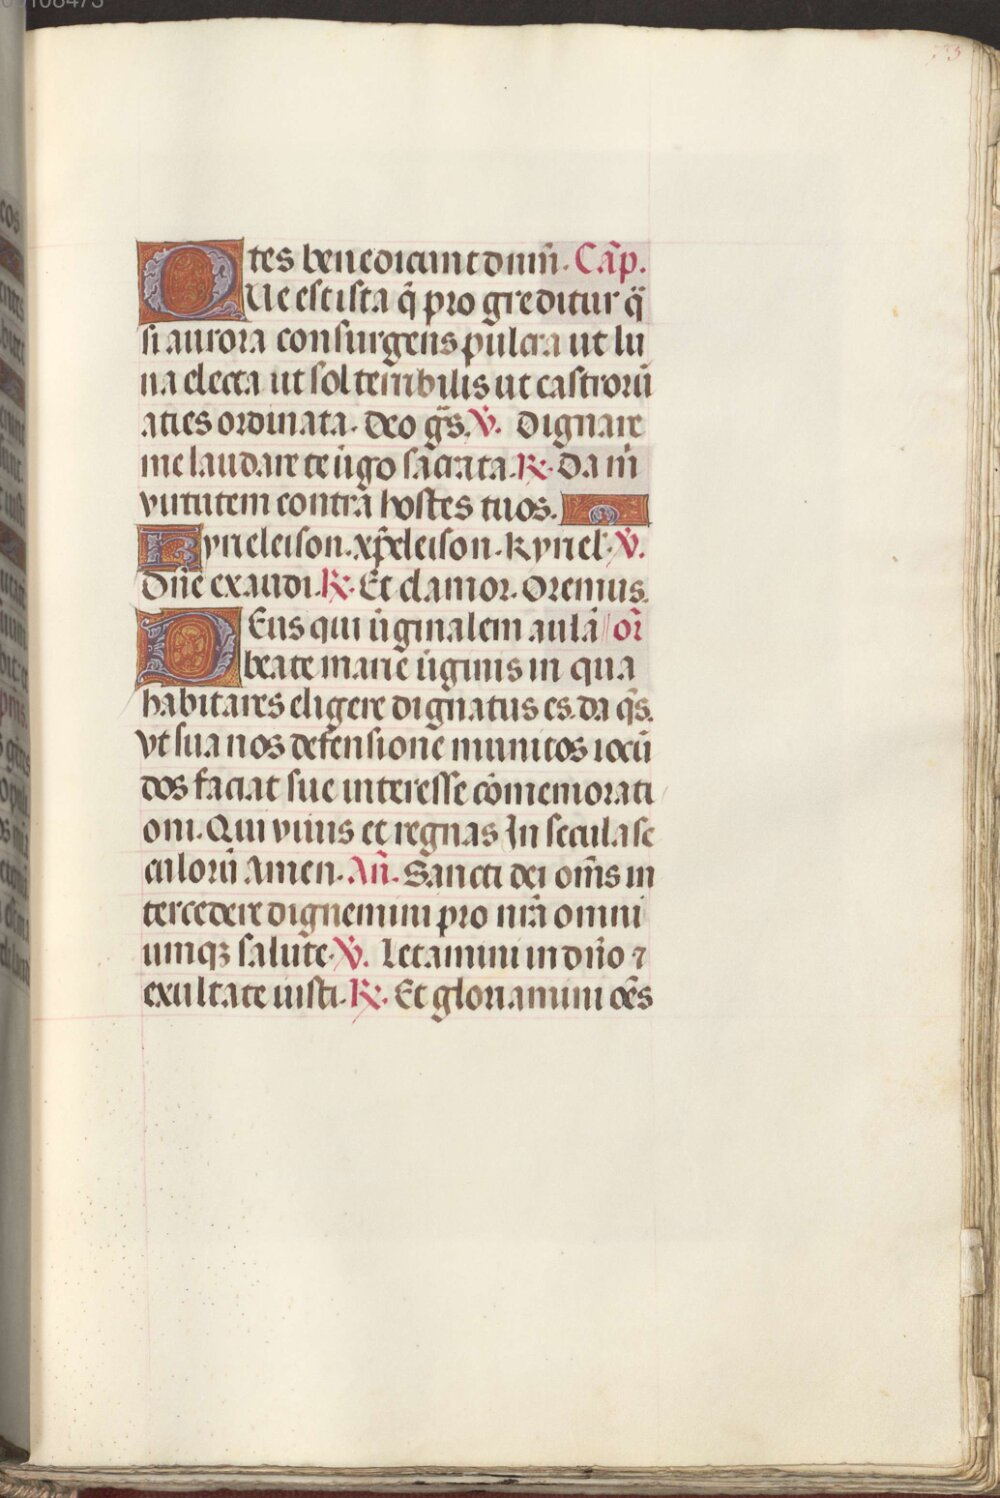 73
tes benedicunt dnm̄. Cap̄.
Que est ista q̄ pro greditur q̄
si aurora consurgens pulcra ut lu
na electa ut sol terribilis ut castrorū
aties ordinata. Deo gr̄s. V̄. Dignare
me laudare te ūgo sacrata. R̄. Da m̄
virtutem contra hostes tuos.
Kyrieleison. xp̄eleison. Kyriel. V̄.
Dn̄e exaudi. R̄. Et clamor. Oremus.
DEus qui ūginalem aulā or̄
beate marie ūginis in qua
habitares eligere dignatus es. da q̄s.
vt sua nos defensione munitos iocū
dos faciat sue interesse cōmemorati
oni. Qui viuis et regnas In secula se
culorū Amen. An̄. Sancti dei om̄s in
tercedere dignemini pro nr̄a omni
umqꝫ salute. V̄. Letamini in dn̄o ⁊
exultate iusti. R̄. Et gloriamini oēs